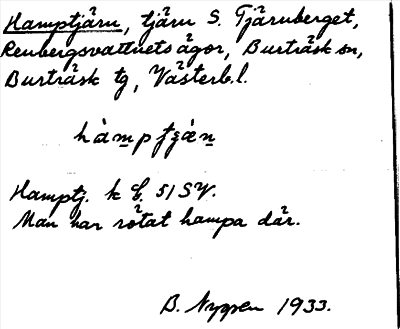 Hamptjärn, tjärn S. Tjärnberget,
Renbergsvattnets ägor, Burträsk sn,
Burträsk tg, Västerb.l.
Hamptj. k E. 51 SV.
Man har rötat hampa där.
B. Nygren 1933.